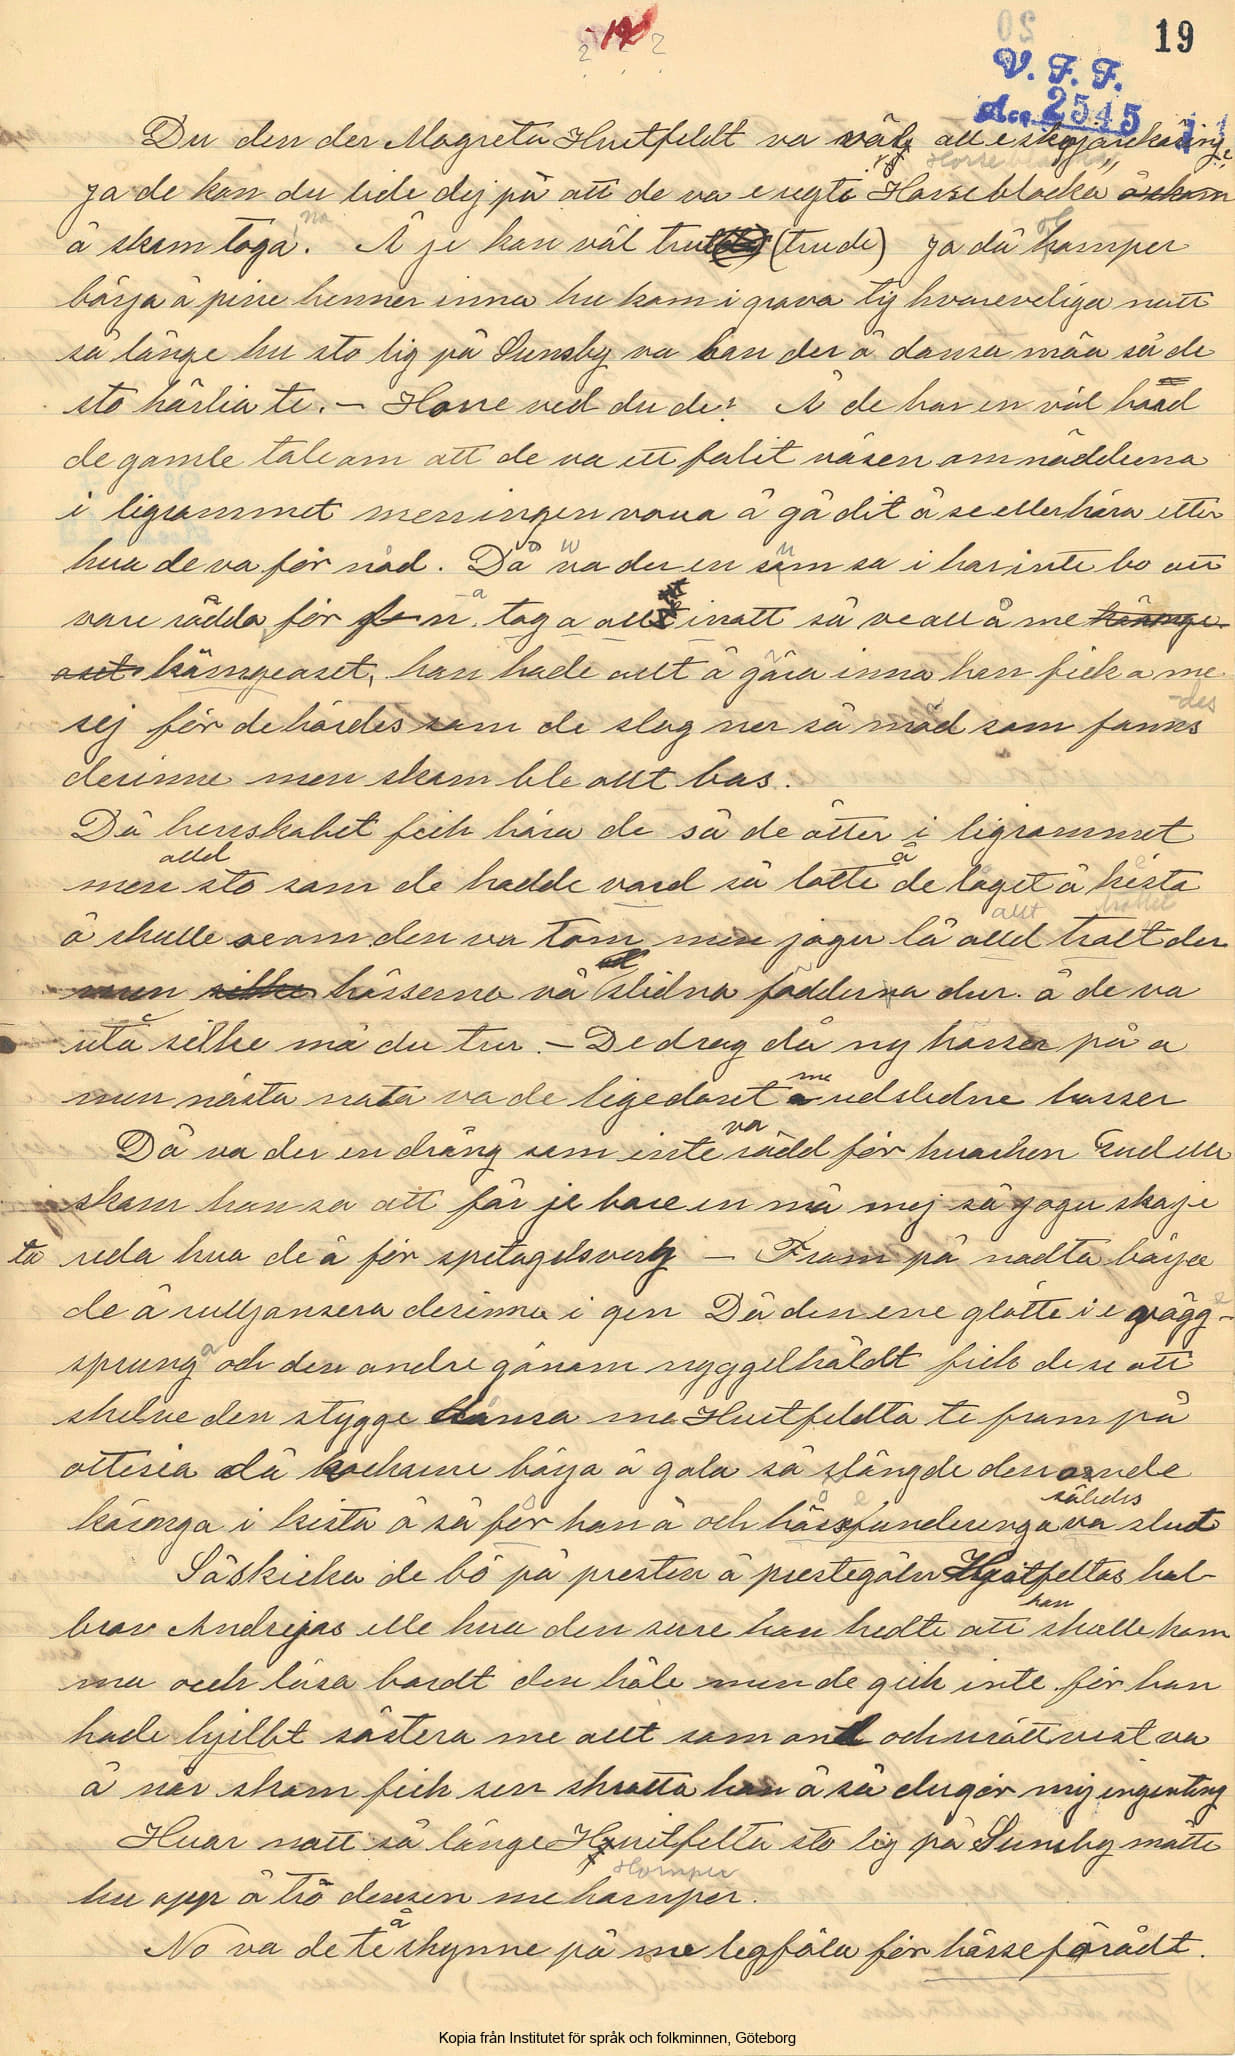 19
V. F. F.
Acc. 2545
Du den der Magreta Huitfeldt va väl
ja de kan du lide dej på att de va e regti Horseblocka
å skam toga. Å je kan väl (trude) ja då hamper
börja å pine henner inna hu kom i grava ty hvareveliga natt
så länge hu sto lig på Sunsby va han der å dansa måa så de
sto härlia te. — Horre ved du de? Å de har en väl hörd
de gamle tale om att de va ett falit väsen om nädderna
i ligrammet men ingen vova å gå dit å se eller höra etter
hva de va för nåd. Då va der en som sa i har inte bo att
vare rädda för taga allt inatt så ve all å me
käringaset, han hade allt å göra inna han fick a me
sej för de hördes som de slog ner så möd som fanns
derinne men skam ble allt bas.
Då herrskabet feck höra de så de åtter i ligrammet
men alld sto som de hadde vard så lotte de låget å kista
å skulle se om den va tom men jagu lå alld tralt der
hösserna vå slidna födderna dur. å de va
utå silke må du tru. — De drog då ny hosser på a
men nästa nata va de ligedant me udslidne hosser
Då va der en dräng som inte va rädd för hvarken Gud eller
skam han sa att får je bare en må mej så jagu ska je
ta reda hva de å för spetagelsverk — Fram på nadta börjee
de å rulljansera derinne i gen Då den ene glötte i e vägg-
sprunga och den andre gönom nyggelhåldt fick de se att
skelve den stygge dansa me Huitfeldta te fram på
ottesia då kockane börja å gala så slängde den onde
käringa i kista å så för han å och hössfunderinga va således slud
Så skicka de bö på presten å prestegåln Huitfeltas hal-
bror Andrejas elle hva den sure han hedte att han skulle kom
ma och läsa bordt den håle men de gick inte för han
hade hjelbt söstera me allt som ondt och urättvist va
å når skam fick sen skratta han å sa du gör mej ingenting
Hvar natt så länge Huitfelta sto lig på Sunsby måtte
hu opp å trö dansen me hamper.
No va de te å skynne på me legföla för hösseförådt.
Kopia från Institutet för språk och folkminnen, Göteborg